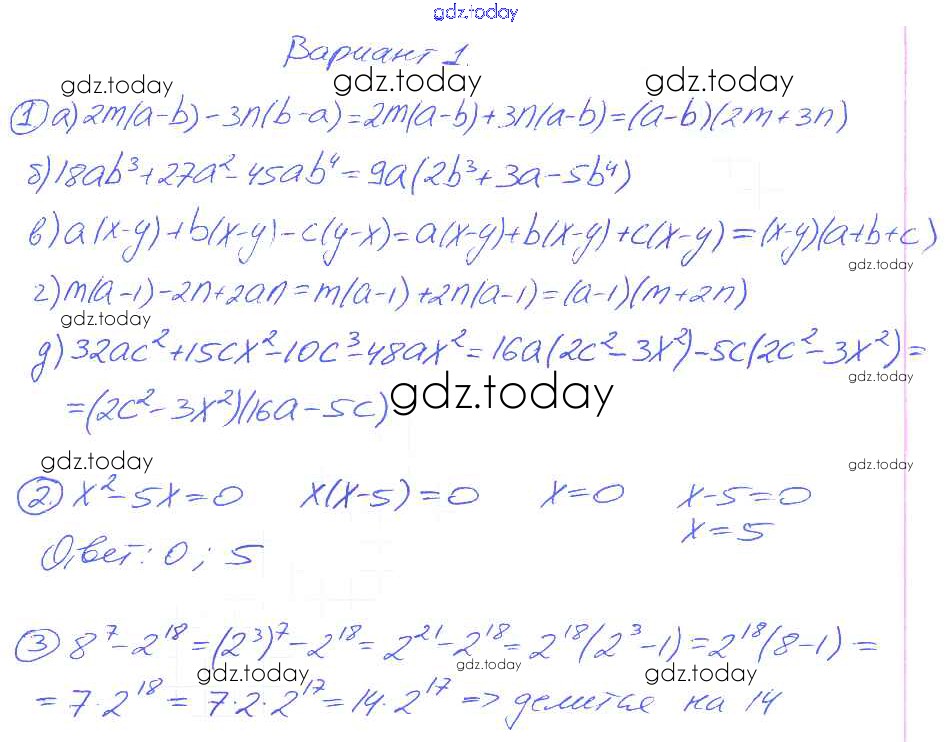 gdz.today
Вариант 1.
gdz.today gdz.today gdz.today
① а) 2m(a-b) - 3n(b-a) = 2m(a-b) + 3n(a-b) = (a-b)(2m+3n)
б) 18ab³ + 27a² - 45ab⁴ = 9a(2b³ + 3a - 5b⁴)
в) a(x-y) + b(x-y) - c(y-x) = a(x-y) + b(x-y) + c(x-y) = (x-y)(a+b+c)
gdz.today
г) m(a-1) - 2n + 2an = m(a-1) + 2n(a-1) = (a-1)(m+2n)
gdz.today
д) 32ac² + 15cx² - 10c³ - 48ax² = 16a(2c² - 3x²) - 5c(2c² - 3x²) =
gdz.today
= (2c² - 3x²)(16a - 5c)
gdz.today
gdz.today gdz.today
② x² - 5x = 0 x(x-5) = 0 x = 0 x-5 = 0
x = 5
Ответ: 0; 5
③ 8⁷ - 2¹⁸ = (2³)⁷ - 2¹⁸ = 2²¹ - 2¹⁸ = 2¹⁸(2³-1) = 2¹⁸(8-1) =
gdz.today gdz.today gdz.today
= 7·2¹⁸ = 7·2·2¹⁷ = 14·2¹⁷ => делится на 14